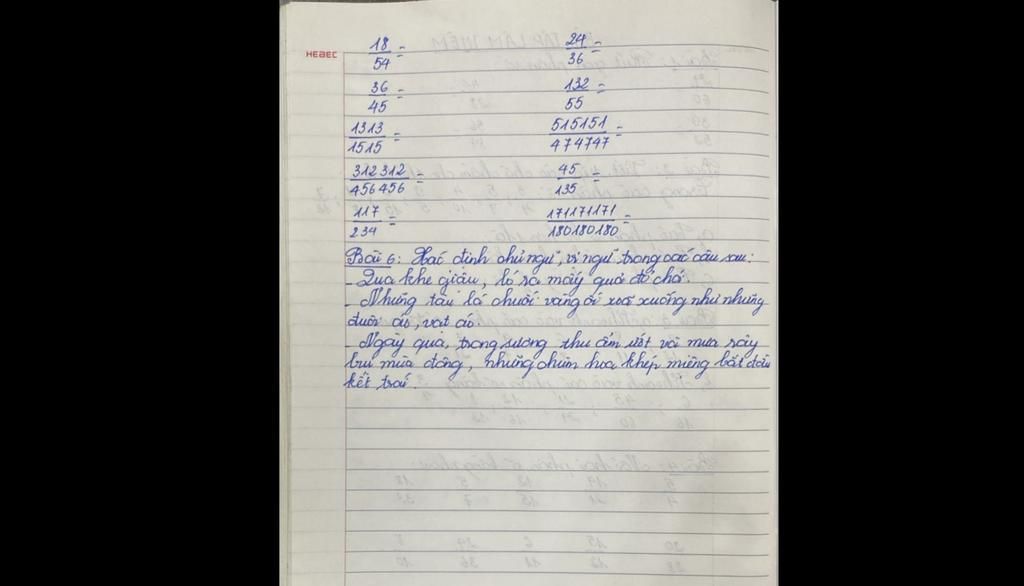 HEBEC
18/54 = 24/36 =
36/45 = 132/55 =
1313/1515 = 515151/474747 =
312312/456456 = 45/135 =
117/234 = 171171171/180180180 =
Bài 6: Xác định chủ ngữ, vị ngữ trong các câu sau:
- Qua khe giậu, ló ra mấy quả đỏ chói.
- Những tàu lá chuối vàng ối xoã xuống như những
đuôi áo, vạt áo.
- Ngày qua, trong sương thu ẩm ướt và mưa rây
bụi mùa đông, những chùm hoa khép miệng bắt đầu
kết trái.